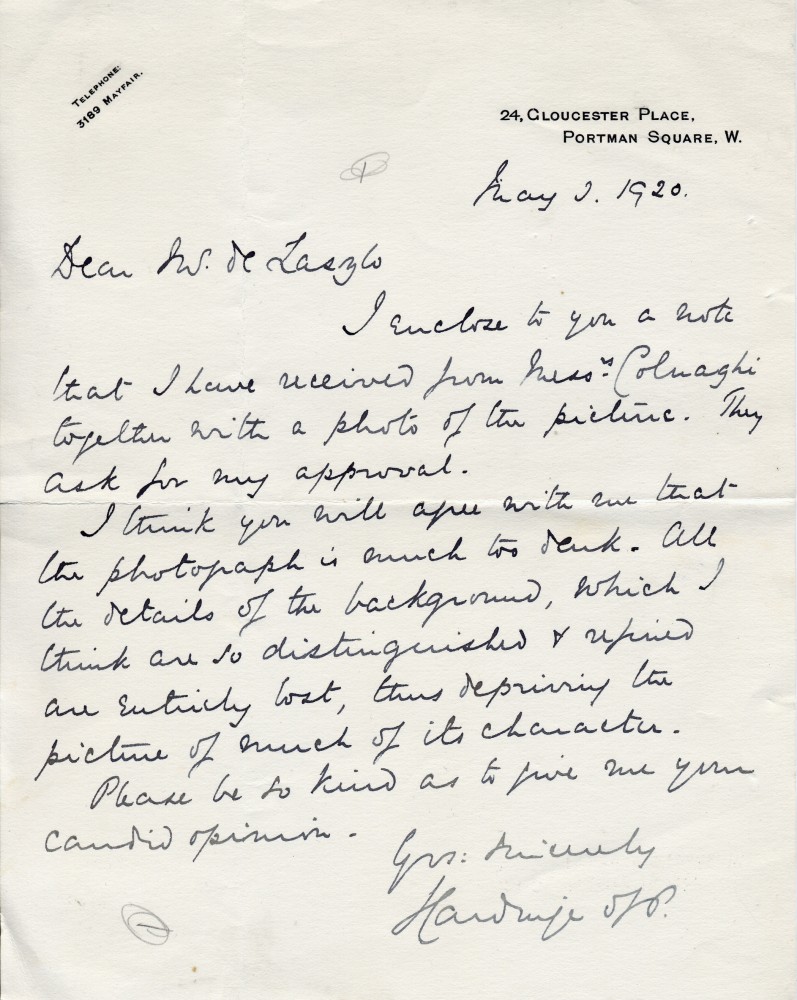 TELEPHONE:
3189 MAYFAIR.
24, GLOUCESTER PLACE,
PORTMAN SQUARE, W.
May 3. 1920.
Dear Mr. de Laszlo
I enclose to you a note
that I have received from Mess.rs Colnaghi
together with a photo of the picture. They
ask for my approval.
I think you will agree with me that
the photograph is much too dark. All
the details of the background, which I
think are so distinguished & refined
are entirely lost, thus depriving the
picture of much of its character.
Please be so kind as to give me your
candid opinion.
Yrs: sincerely
Hardinge of P.